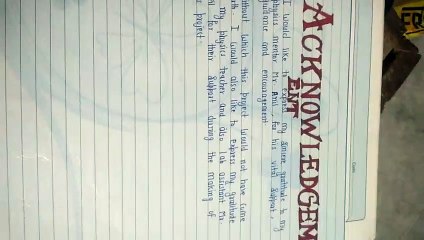 ACKNOWLEDGEM
ENT
I would like to express my sincere gratitude to my
physics mentor Mr. Amil, for his vital support,
guidance and encouragement
without which this project would not have come
I would also like to express my gratitude
my physics teacher and also lab assistant Mr.
for their support during the making of
project
Date